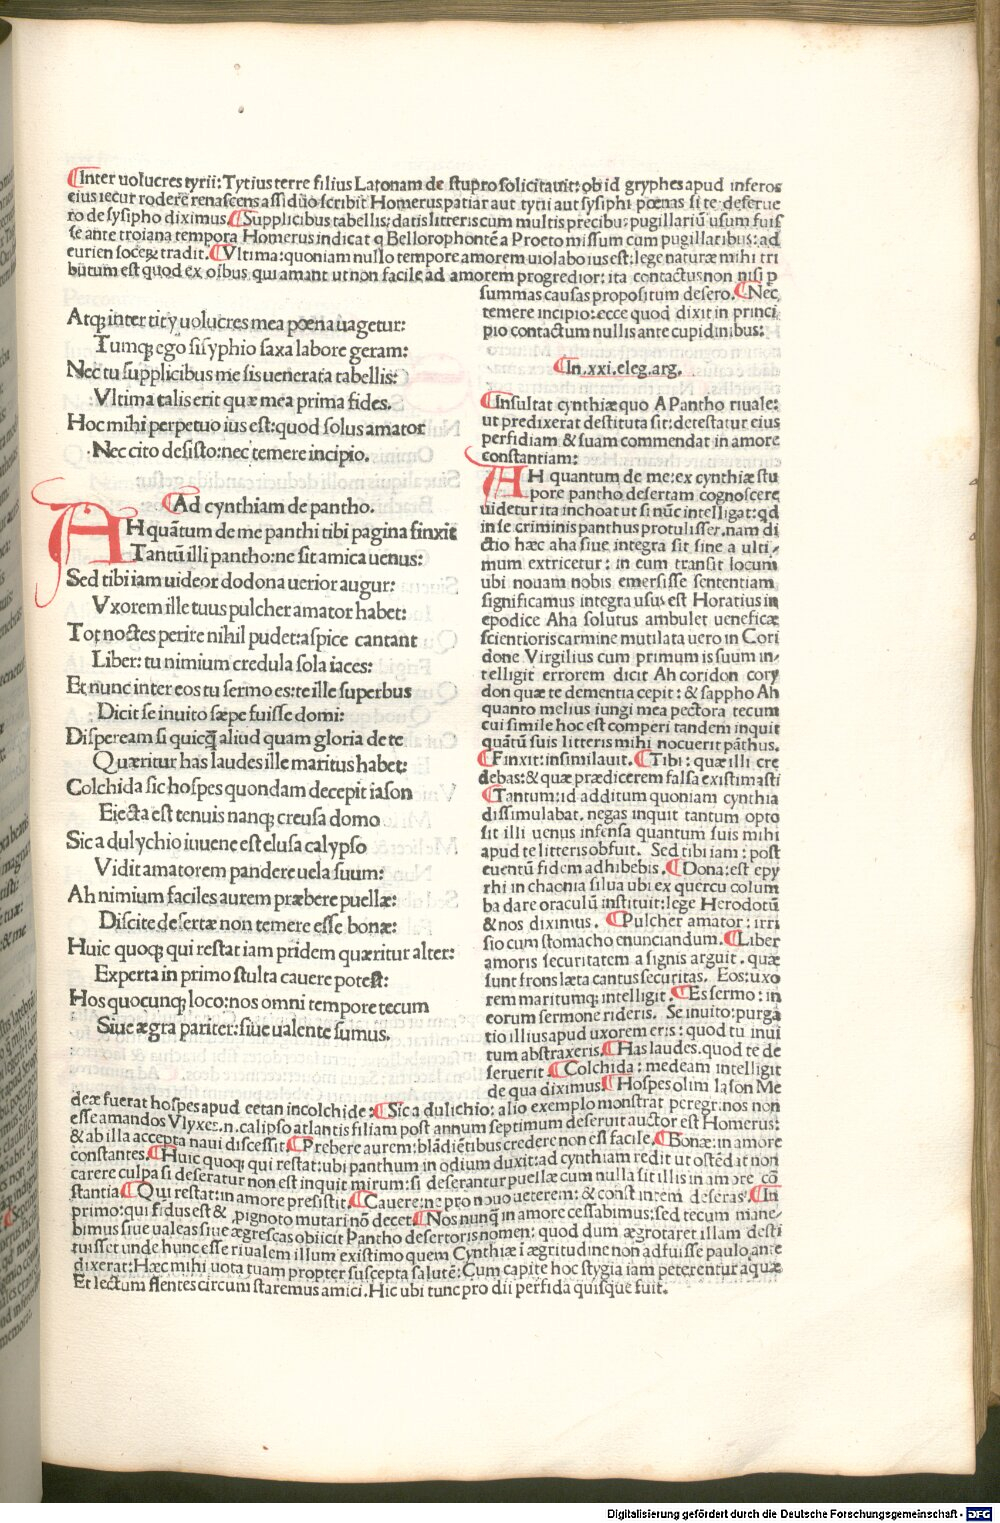 ¶Inter uolucres tyrii: Tytius terre filius Latonam de stupro solicitauit: ob id gryphes apud inferos
eius iecur rodere renascens assiduo scribit Homerus patiar aut tytii aut sysiphi pœnas si te deserue
ro de sysipho diximus. ¶Supplicibus tabellis: datis litteris cum multis precibus: pugillariũ usum fuis
se ante troiana tempora Homerus indicat q Bellorophontẽ a Proeto missum cum pugillaribus: ad
eurien tradit. ¶Vltima: quoniam nullo tempore amorem uiolabo ius est: lege naturæ mihi tri
butum est quod ex oibus qui amant ut non facile ad amorem progredior: ita contactus non nisi p
summas causas propositum desero. ¶Nec
temere incipio: ecce quod dixit in princi
pio contactum nullis ante cupidinibus:
Atq; inter tityi uolucres mea pœna uagetur:
Tumq; ego sisyphio saxa labore geram:
Nec tu supplicibus me sis uenerata tabellis:
Vltima talis erit quæ mea prima fides.
Hoc mihi perpetuo ius est: quod solus amator
Nec cito desisto: nec temere incipio.
¶Ad cynthiam de pantho.
AH quãtum de me panthi tibi pagina finxit
Tantũ illi pantho: ne sit amica uenus:
Sed tibi iam uideor dodona uerior augur:
Vxorem ille tuus pulcher amator habet:
Tot noctes perire nihil pudet: aspice cantant
Liber: tu nimium credula sola iaces:
Et nunc inter eos tu sermo es: te ille superbus
Dicit se inuito sæpe fuisse domi:
Dispeream si quicq̃ aliud quam gloria de te
Quæritur has laudes ille maritus habet:
Colchida sic hospes quondam decepit iason
Eiecta est tenuis nanq; creusa domo
Sic a dulychio iuuene est elusa calypso
Vidit amatorem pandere uela suum:
Ah nimium faciles aurem præbere puellæ:
Discite desertæ non temere esse bonæ:
Huic quoq; qui restat iam pridem quæritur alter:
Experta in primo stulta cauere potest:
Hos quocunq; loco: nos omni tempore tecum
Siue ægra pariter: siue ualente sumus.
¶In .xxi. eleg. arg.
¶Insultat cynthiæ quo A Pantho riuale:
ut predixerat destituta sit: detestatur eius
perfidiam & suam commendat in amore
constantiam:
AH quantum de me: ex cynthiæ stu
pore pantho desertam cognoscere
uidetur ita inchoat ut si nũc intelligat: qd
in se criminis panthus protulisser. nam di
ctio hæc aha siue integra sit sine a ulti⸗
mum extricetur: in eum transit locum
ubi nouam nobis emersisse sententiam
significamus integra usus est Horatius in
epodice Aha solutus ambulet ueneficæ
scientioris carmine mutilata uero in Cori
done Virgilius cum primum is suum in⸗
telligit errorem dicit Ah coridon cory
don quæ te dementia cepit: & sappho Ah
quanto melius iungi mea pectora tecum
cui simile hoc est comperi tandem inquit
quãtũ suis litteris mihi nocuerit pãthus.
¶Finxit: insimilauit. ¶Tibi: quæ illi cre
debas: & quæ prædicerem falsa existimasti
¶Tantum: id additum quoniam cynthia
dissimulabat. negans inquit tantum opto
sit illi uenus infensa quantum suis mihi
apud te litteris obfuit. Sed tibi iam: post
euentũ fidem adhibebis. ¶Dona: est epy
rhi in chaonia silua ubi ex quercu colum
ba dare oraculũ instituit: lege Herodotũ
& nos diximus. ¶Pulcher amator: irri
sio cum stomacho enunciandum. ¶Liber
amoris securitatem a signis arguit. quæ
sunt frons læta cantus securitas. Eos: uxo
rem maritumq; intelligit. ¶Es sermo: in
eorum sermone rideris. Se inuito: purga
tio illius apud uxorem eris: quod tu inui
tum abstraxeris. ¶Has laudes. quod te de
seruerit ¶Colchida: medeam intelligit
de qua diximus. ¶Hospes olim Iason Me
deæ fuerat hospes apud eetan in colchide: ¶Sic a dulichio: alio exemplo monstrat peregrinos non
esse amandos Vlyxes .n. calipso atlantis filiam post annum septimum deseruit auctor est Homerus:
& ab illa accepta naui discessit. ¶Prebere aurem: blãdiẽtibus credere non est facile. ¶Bonæ: in amore
constantes. ¶Huic quoq; qui restat: ubi panthum in odium duxit: ad cynthiam redit ut ostẽdat non
carere culpa si deseratur non est inquit mirum: si deserantur puellæ cum nulla sit illis in amore cõ
stantia ¶Qui restat: in amore presistit. ¶Cauere: ne pro nouo ueterem: & constantem deseras. ¶In
primo: qui fidus est & pignoto mutari nõ decet. ¶Nos nunq̃ in amore cessabimus: sed tecum mane⸗
bimus siue ualeas siue ægrescas obiicit Pantho desertoris nomen: quod dum ægrotaret illam desti
tuisset unde hunc esse riualem illum existimo quem Cynthiæ i ægritudine non adfuisse paulo ante
dixerat: Hæc mihi uota tuam propter suscepta salutẽ: Cum capite hoc stygia iam peterentur aquæ
Et lectum flentes circum staremus amici. Hic ubi tunc pro dii perfida quisque fuit.
Digitalisierung gefördert durch die Deutsche Forschungsgemeinschaft - DFG